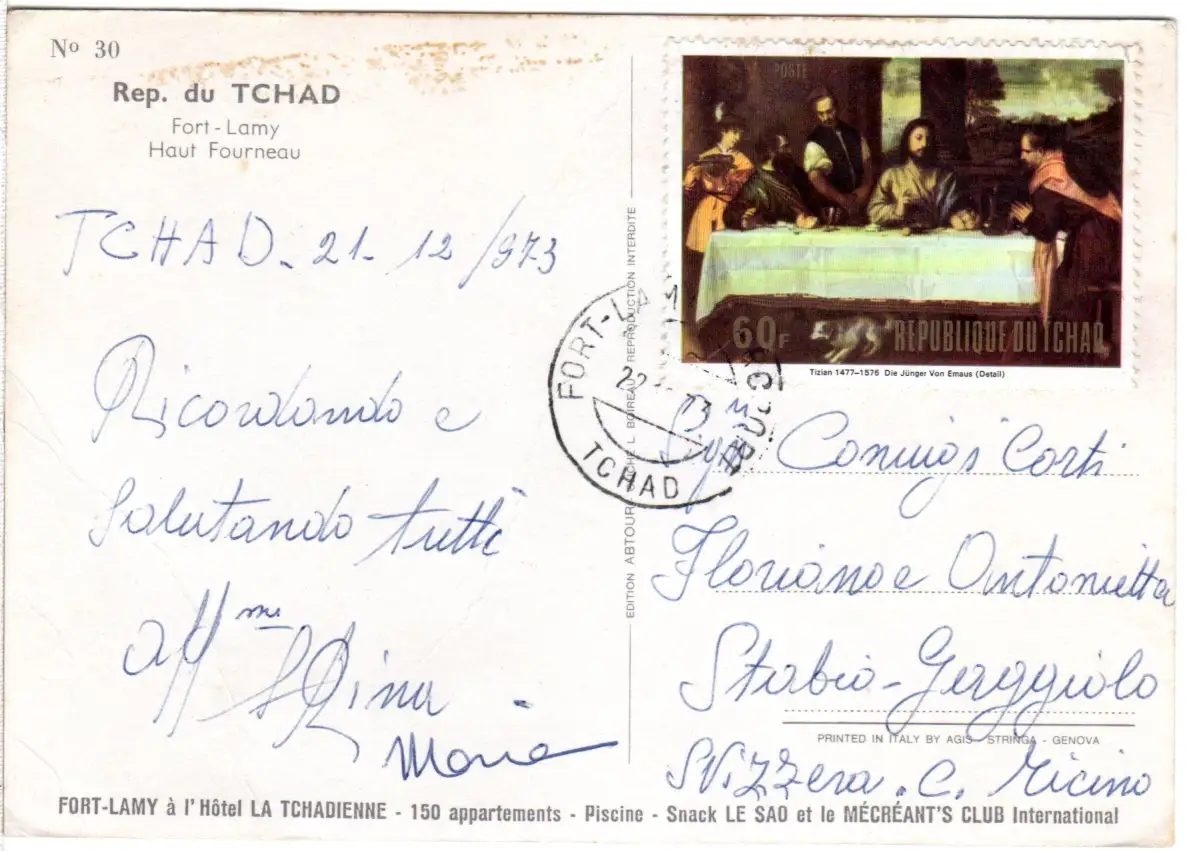 Nº 30
Rep. du TCHAD
Fort-Lamy
Haut Fourneau
TCHAD. 21- 12/973
Ricordando e
Salutando tutti
aff.mi
Mario
EDITION ABTOUR REPRODUCTION INTERDITE
POSTE
60F REPUBLIQUE DU TCHAD
Tizian 1477–1576 Die Jünger Von Emaus (Detail)
FORT-LAMY
22 73
TCHAD
Coniugi Corti
Floriano e Antonietta
Stabio - Gaggiolo
SVizzera. C. Ticino
PRINTED IN ITALY BY AGIS - STRINGA - GENOVA
FORT-LAMY à l'Hôtel LA TCHADIENNE - 150 appartements - Piscine - Snack LE SAO et le MÉCRÉANT'S CLUB International